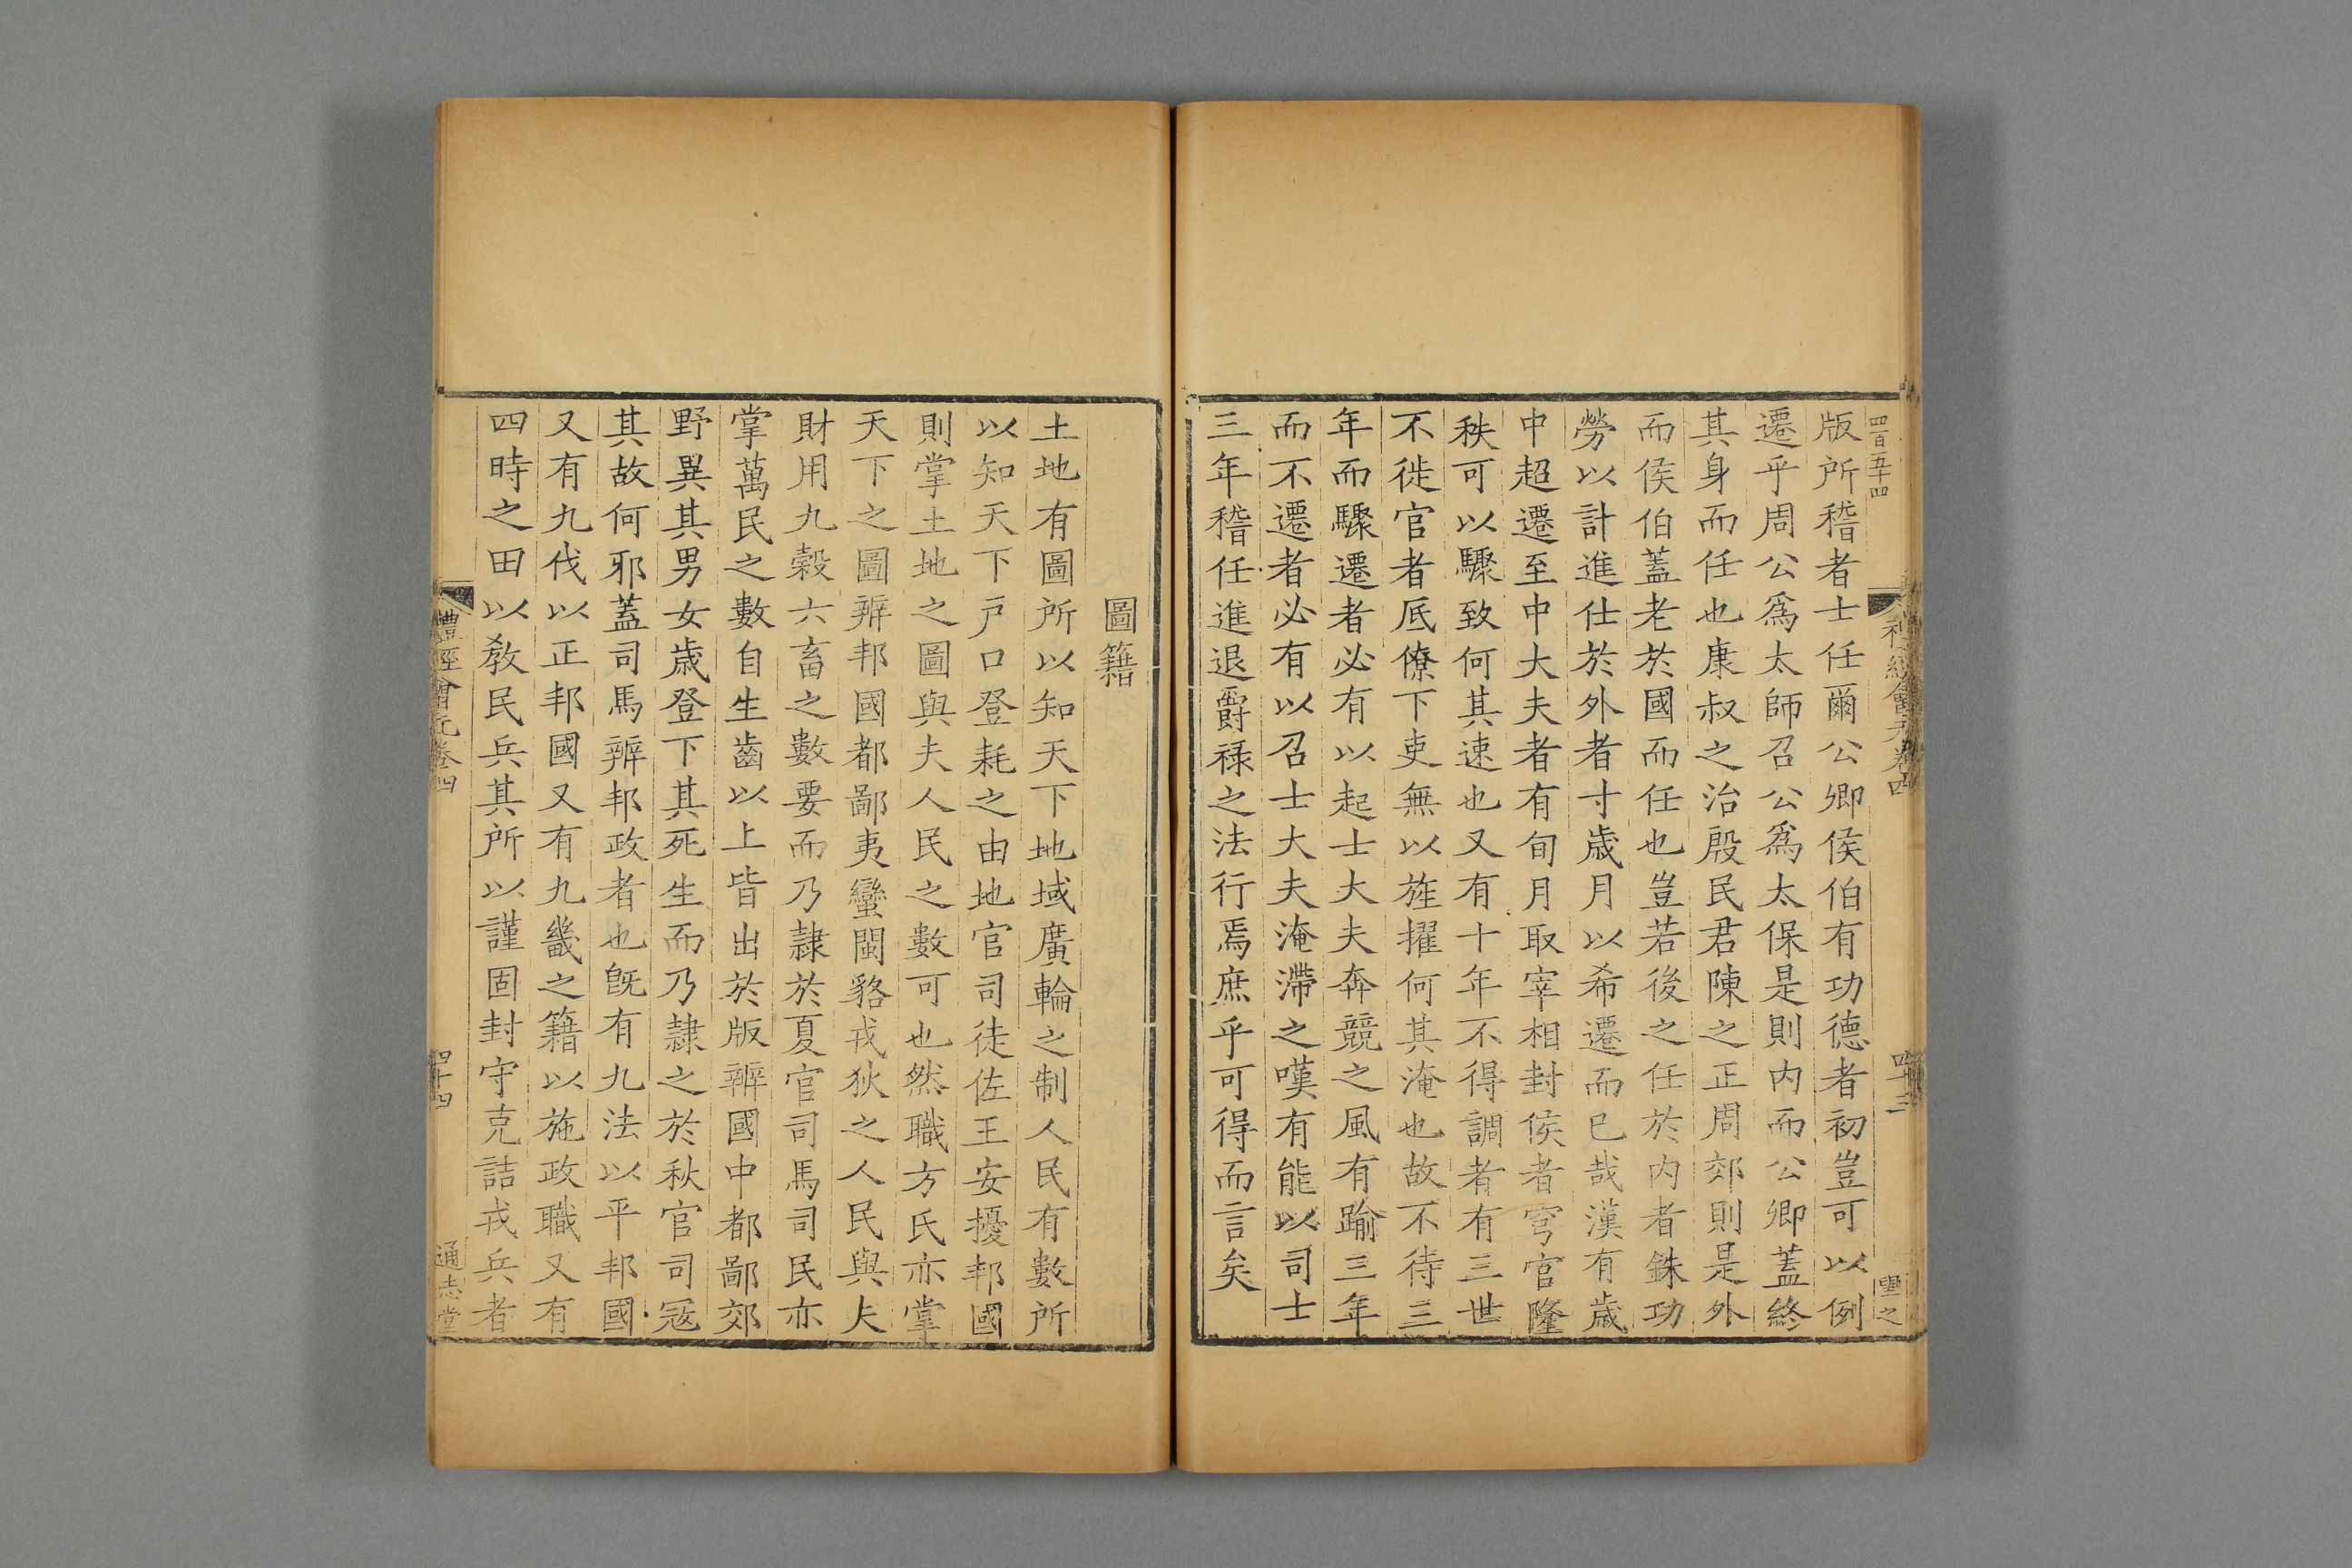 四百五十四
禮經會元卷四
四十三
聖之
版所稽者士任爾公卿侯伯有功德者初豈可以例
遷乎周公爲太師召公爲太保是則内而公卿蓋終
其身而任也康叔之治殷民君陳之正周郊則是外
而侯伯蓋老於國而任也豈若後之任於内者銖功
勞以計進仕於外者寸歲月以希遷而已哉漢有歲
中超遷至中大夫者有旬月取宰相封侯者穹官隆
秩可以驟致何其速也又有十年不得調者有三世
不徙官者底僚下吏無以旌擢何其淹也故不待三
年而驟遷者必有以起士大夫奔競之風有踰三年
而不遷者必有以召士大夫淹滯之嘆有能以司士
三年稽任進退爵祿之法行焉庶乎可得而言矣
圖籍
土地有圖所以知天下地域廣輪之制人民有數所
以知天下戸口登耗之由地官司徒佐王安擾邦國
則掌土地之圖與夫人民之數可也然職方氏亦掌
天下之圖辨邦國都鄙夷蠻閩貉戎狄之人民與夫
財用九穀六畜之數要而乃隷於夏官司馬司民亦
掌萬民之數自生齒以上皆出於版辨國中都鄙郊
野異其男女歲登下其死生而乃隷之於秋官司寇
其故何邪蓋司馬辨邦政者也旣有九法以平邦國
又有九伐以正邦國又有九畿之籍以施政職又有
四時之田以敎民兵其所以謹固封守克詰戎兵者
禮經會元卷四
四十四
通志堂